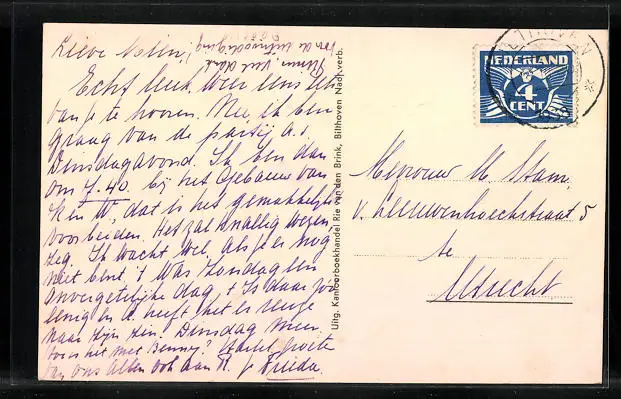 Lieve Mien,
Echt leuk weer eens iets
van je te hooren. Nu, ik ben
graag van de partij a.s.
Dinsdagavond. Ik ben dan
om 7.40 bij het Gebouw van
K en W, dat is het gemakkelijkst
voor beiden. Het zal knallig wezen
zeg. Ik wacht wel, als je er nog
niet bent. 't Was Zondag een
onvergetelijke dag. 't Is daar zoo
eenig en A. heeft het er reuze
naar zijn zin. Dinsdag meer.
Hoe is het met Benny? Hartel. groete
van ons allen ook aan H. je Frieda.
voor de uitnoodiging
Uitg. Kantoorboekhandel Rie van den Brink, Bilthoven Nadr. verb.
BILTHOVEN
NEDERLAND
4
CENT
Mevrouw M. Stam
v. Leeuwenhoeckstraat 5
te
Utrecht